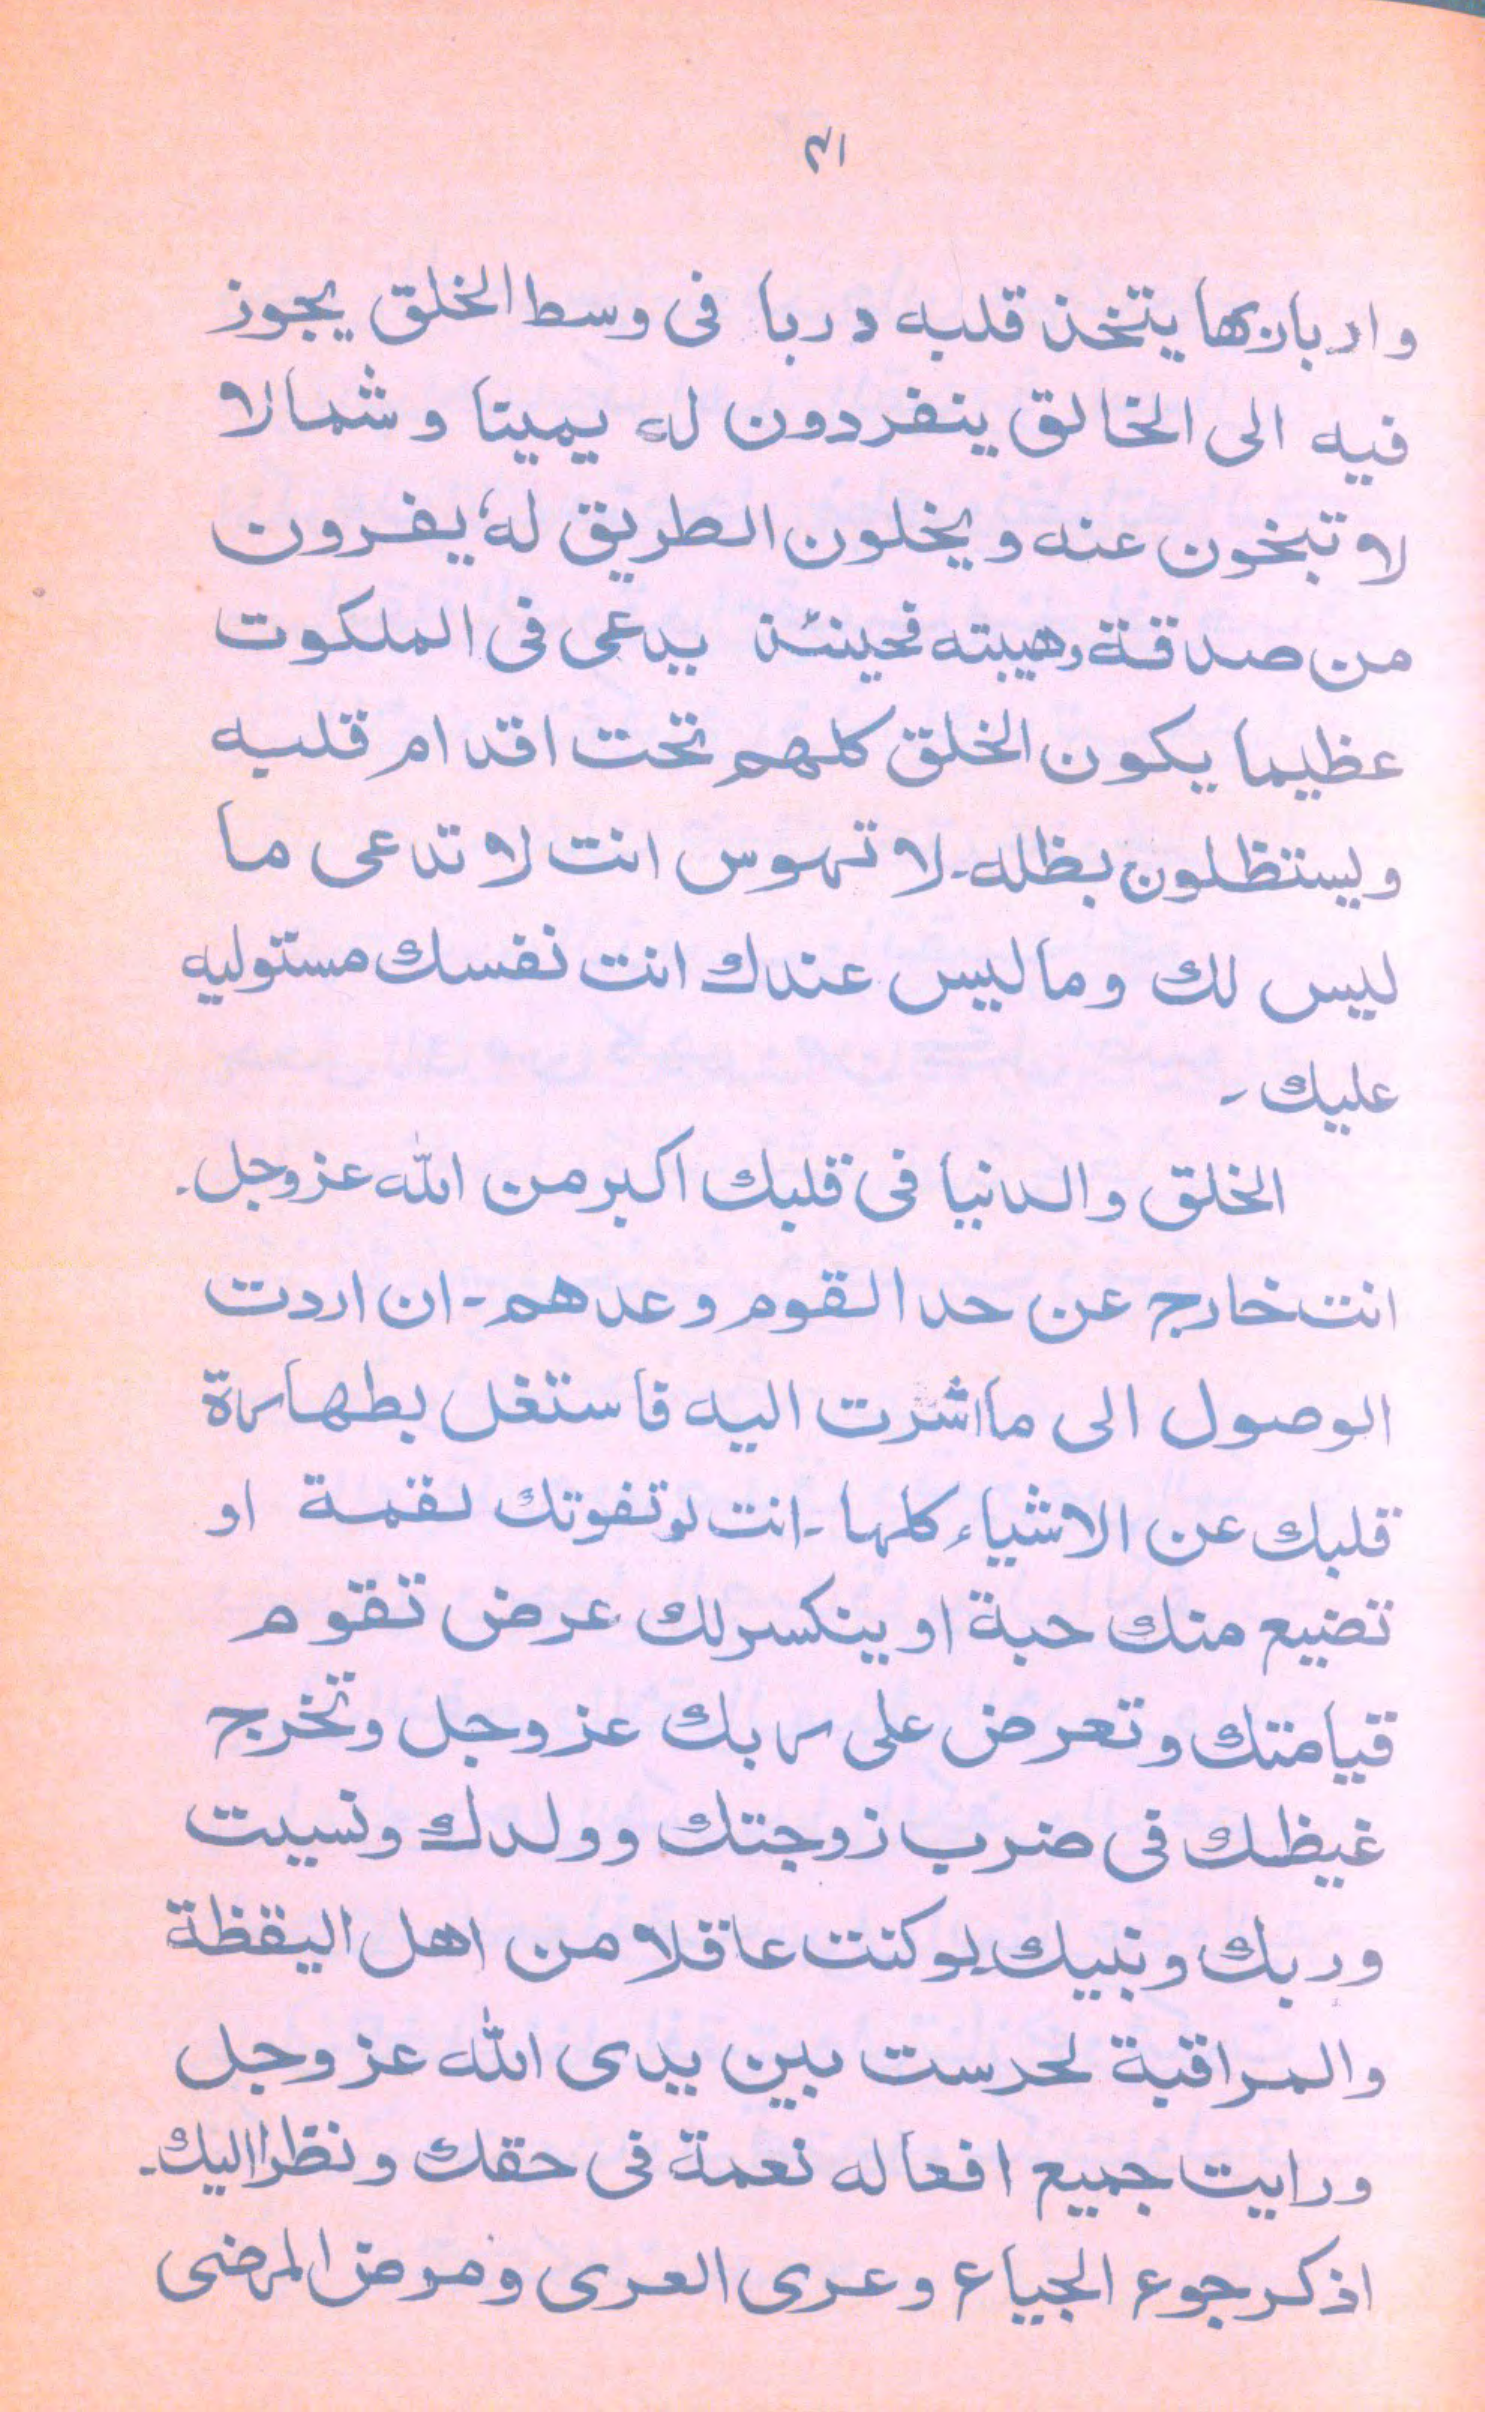 ٢١
وادبارها يتخذ قلبه دربا فى وسط الخلق يجوز
فيه الى الخالق ينفردون له يمينا وشمالا
لا تبخون عنه ويخلون الطريق له يفرون
من صدقة وهيبته فحينئذ يدعى فى الملكوت
عظيما يكون الخلق كلهم تحت اقدام قلبه
ويستظلون بظله۔ لا تهوس انت لا تدعى ما
ليس لك وما ليس عندك انت نفسك مستوليه
عليك۔
الخلق والدنيا فى قلبك اكبر من الله عزوجل۔
انت خارج عن حد القوم وعدهم۔ ان اردت
الوصول الى ما اشرت اليه فاستغل بطهارة
قلبك عن الاشياء كلها۔ انت لو تفوتك لقمة او
تضيع منك حبة او ينكسر لك عرض تقوم
قيامتك وتعرض على ربك عزوجل وتخرج
غيظك فى ضرب زوجتك وولدك ونسيت
وربك ونبيك لو كنت عاقلا من اهل اليقظة
والمراقبة لحرست بين يدى الله عزوجل
ورايت جميع افعاله نعمة فى حقك ونظرا اليك۔
اذكر جوع الجياع وعرى العرى ومرض المرضى